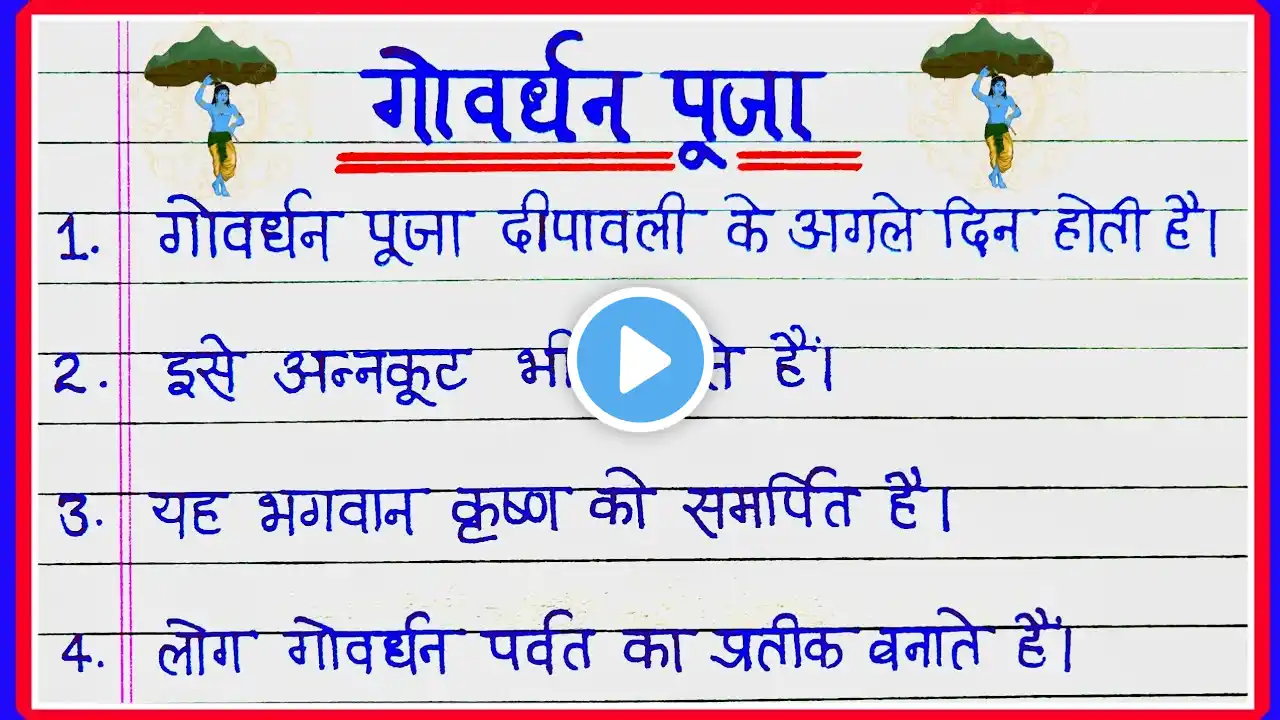 गोवर्धन पूजा
1. गोवर्धन पूजा दीपावली के अगले दिन होती है।
2. इसे अन्नकूट भी हैं।
3. यह भगवान कृष्ण को समर्पित है।
4. लोग गोवर्धन पर्वत का प्रतीक बनाते हैं।